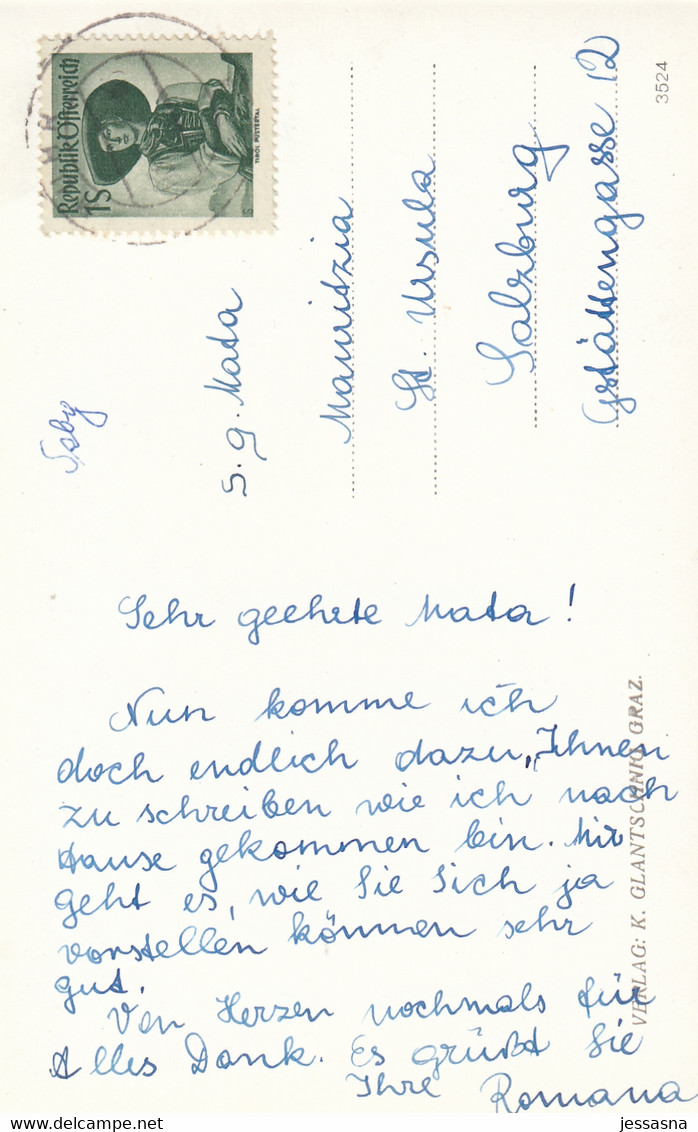 Republik Österreich
1S
TIROL PUSTERTAL
3524
S. g. Mata
Mauritzia
St. Ursula
Salzburg
Gstättengasse 12
Sehr geehrte Mata!
Nun komme ich
doch endlich dazu, Ihnen
zu schreiben wie ich nach
Hause gekommen bin. Mir
geht es, wie Sie Sich ja
vorstellen können sehr
gut.
Von Herzen nochmals für
Alles Dank. Es grüßt Sie
Ihre Romana
VERLAG: K. GLANTSCHNIG, GRAZ.
https://www.delcampe.net
jessasna